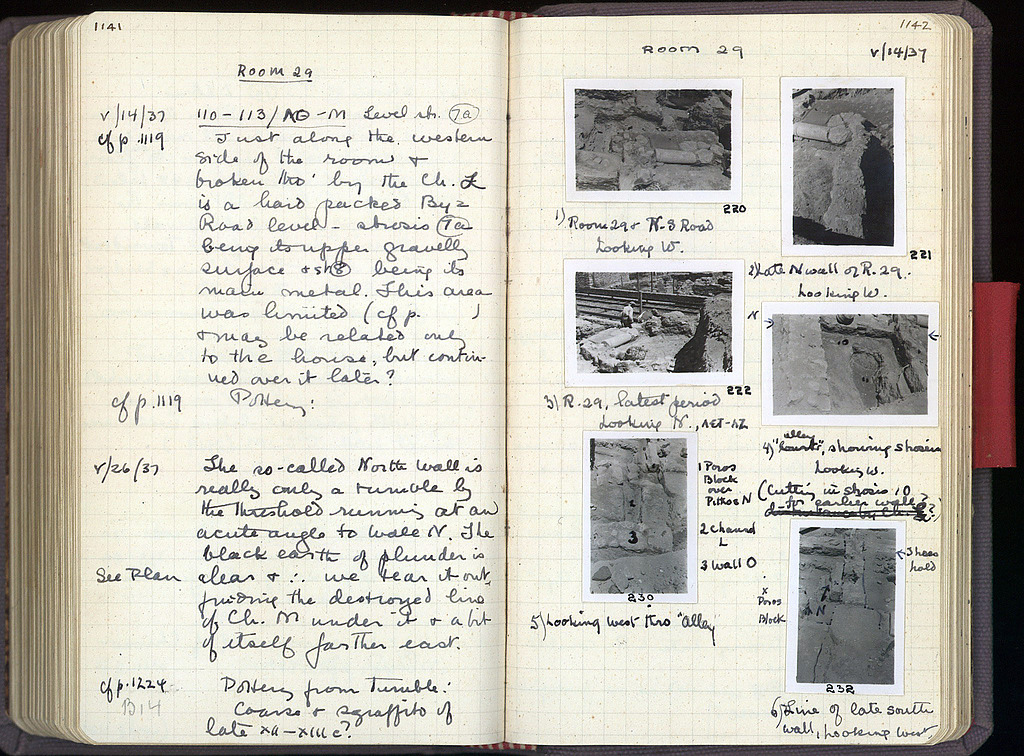 1141
ROOM 29
V/14/37 110-113/NO-M Level str. 7a
cf p. 1119 Just along the western
side of the room &
broken thro' by the Ch. L
is a hard packed Byz
Road level - strosis 7a
being its upper gravelly
surface & str 8 being its
main metal. This area
was limited (cf p. )
& may be related only
to the house, but contin-
ued over it later?
cf p. 1119 Pottery:
V/26/37 The so-called North wall is
really only a tumble by
the threshold running at an
acute angle to wall N. The
black earth of plunder is
See Plan clear & ∴ we tear it out,
finding the destroyed line
of Ch. M under it & a bit
of itself farther east.
cf p. 1224 Pottery from Tumble:
B14 Coarse & sgraffito of
late XII-XIII c?
1142
ROOM 29 V/14/37
220
1) Room 29 & N-S Road
Looking W.
221
2) Late N wall of R. 29.
Looking W.
222
3) R. 29, latest period
Looking N.,
N
4) "alley", showing strosis
Looking W.
(Cutting in strosis 10
for earlier wall?)
1 Poros
Block
over
Pithos N
2 Channel
L
3 Wall O
2
3
230
5) Looking west thro "Alley"
Threshold
x
Poros
Block
N
232
6) Line of late south
wall, Looking West.